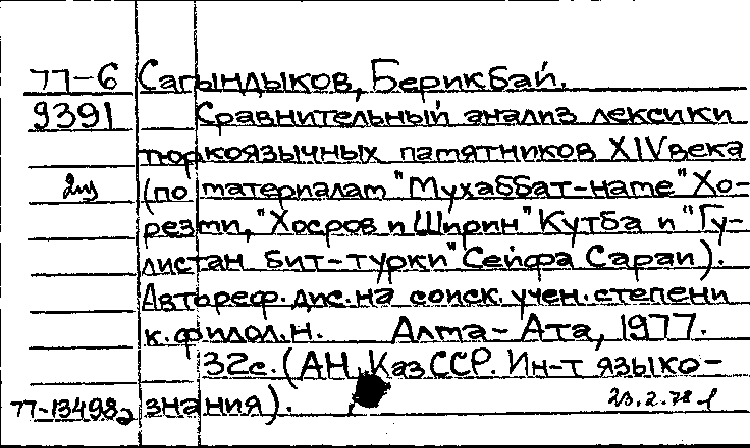 77-6 Сагындыков, Берикбай.
9391 Сравнительный анализ лексики
тюркоязычных памятников XIV века
(по материалам "Мухаббат-наме" Хо-
резми, "Хосров и Ширин" Кутба и "Гу-
листан бит-турки" Сейфа Сараи).
Автореф. дис. на соиск. учен. степени
к. филол. н. Алма-Ата, 1977.
32с. (АН КазССР. Ин-т языко-
77-13498 знания). 23.2.78